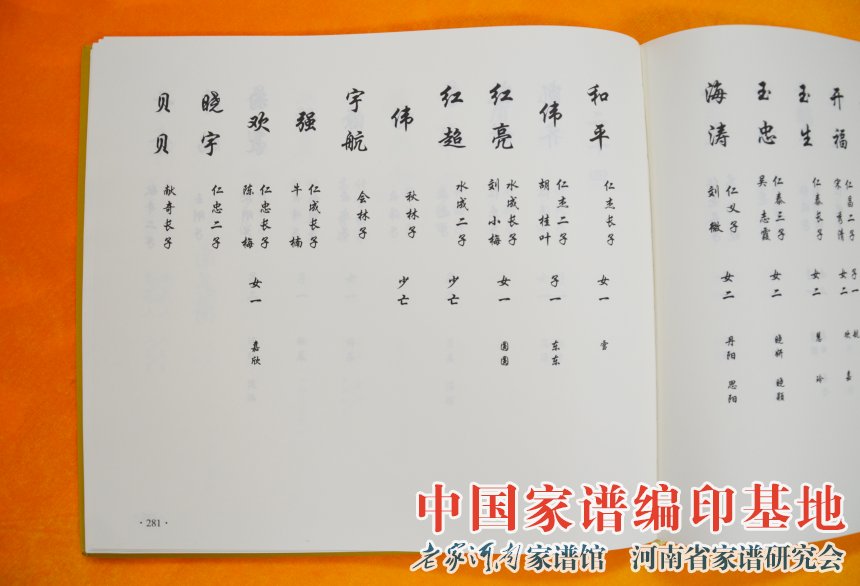 开福
仁昌二子 子一 航
宋秀清 女二 欣 嘉
玉生
仁泰长子 女二 慧 玲
玉忠
仁泰三子 女二 晓妍 晓颖
吴志霞
海涛
仁义子 女二 丹阳 思阳
刘微
和平
仁杰长子 女一 雪
伟
仁杰二子 子一 东东
胡桂叶
红亮
水成长子 女一 圆圆
刘小梅
红超
水成二子 少亡
伟
秋林子 少亡
宇航
会林子
强
仁成长子
牛楠
欢
仁忠长子 女一 嘉欣
陈梅
晓宇
仁忠二子
贝贝
献奇长子
·281·
中国家谱编印基地
老家河南家谱馆 河南省家谱研究会